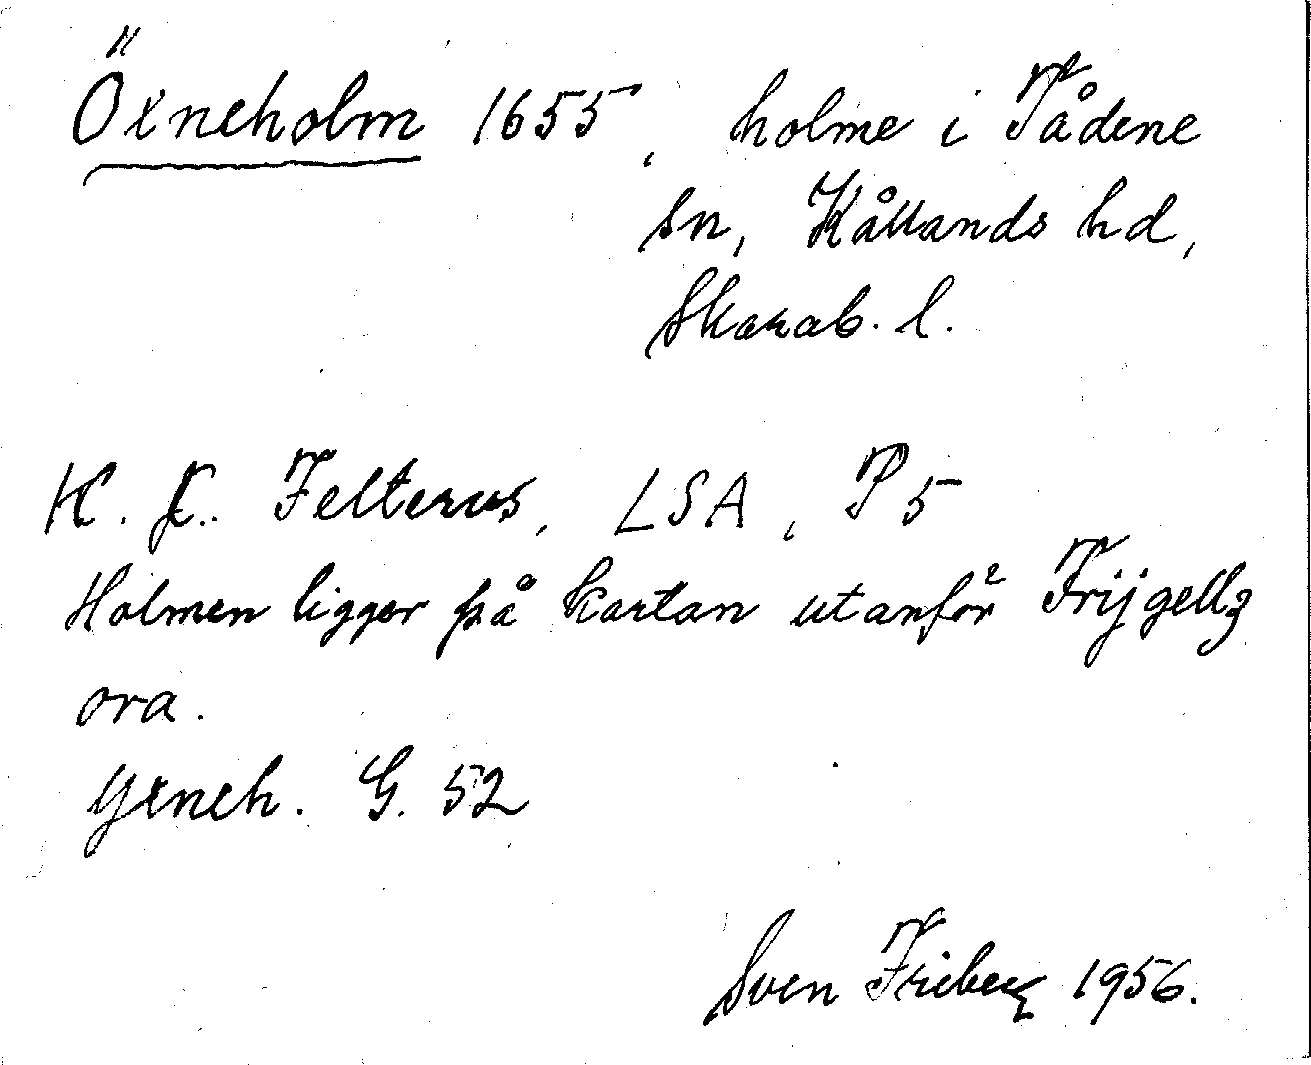 Öxneholm 1655, holme i Tådene
sn, Kållands hd,
Skarab. l.
K. L. Felterus, LSA, P 5
Holmen ligger på kartan utanför Frijgellz
ora.
Yxneh. G. 52
Sven Friberg 1956.